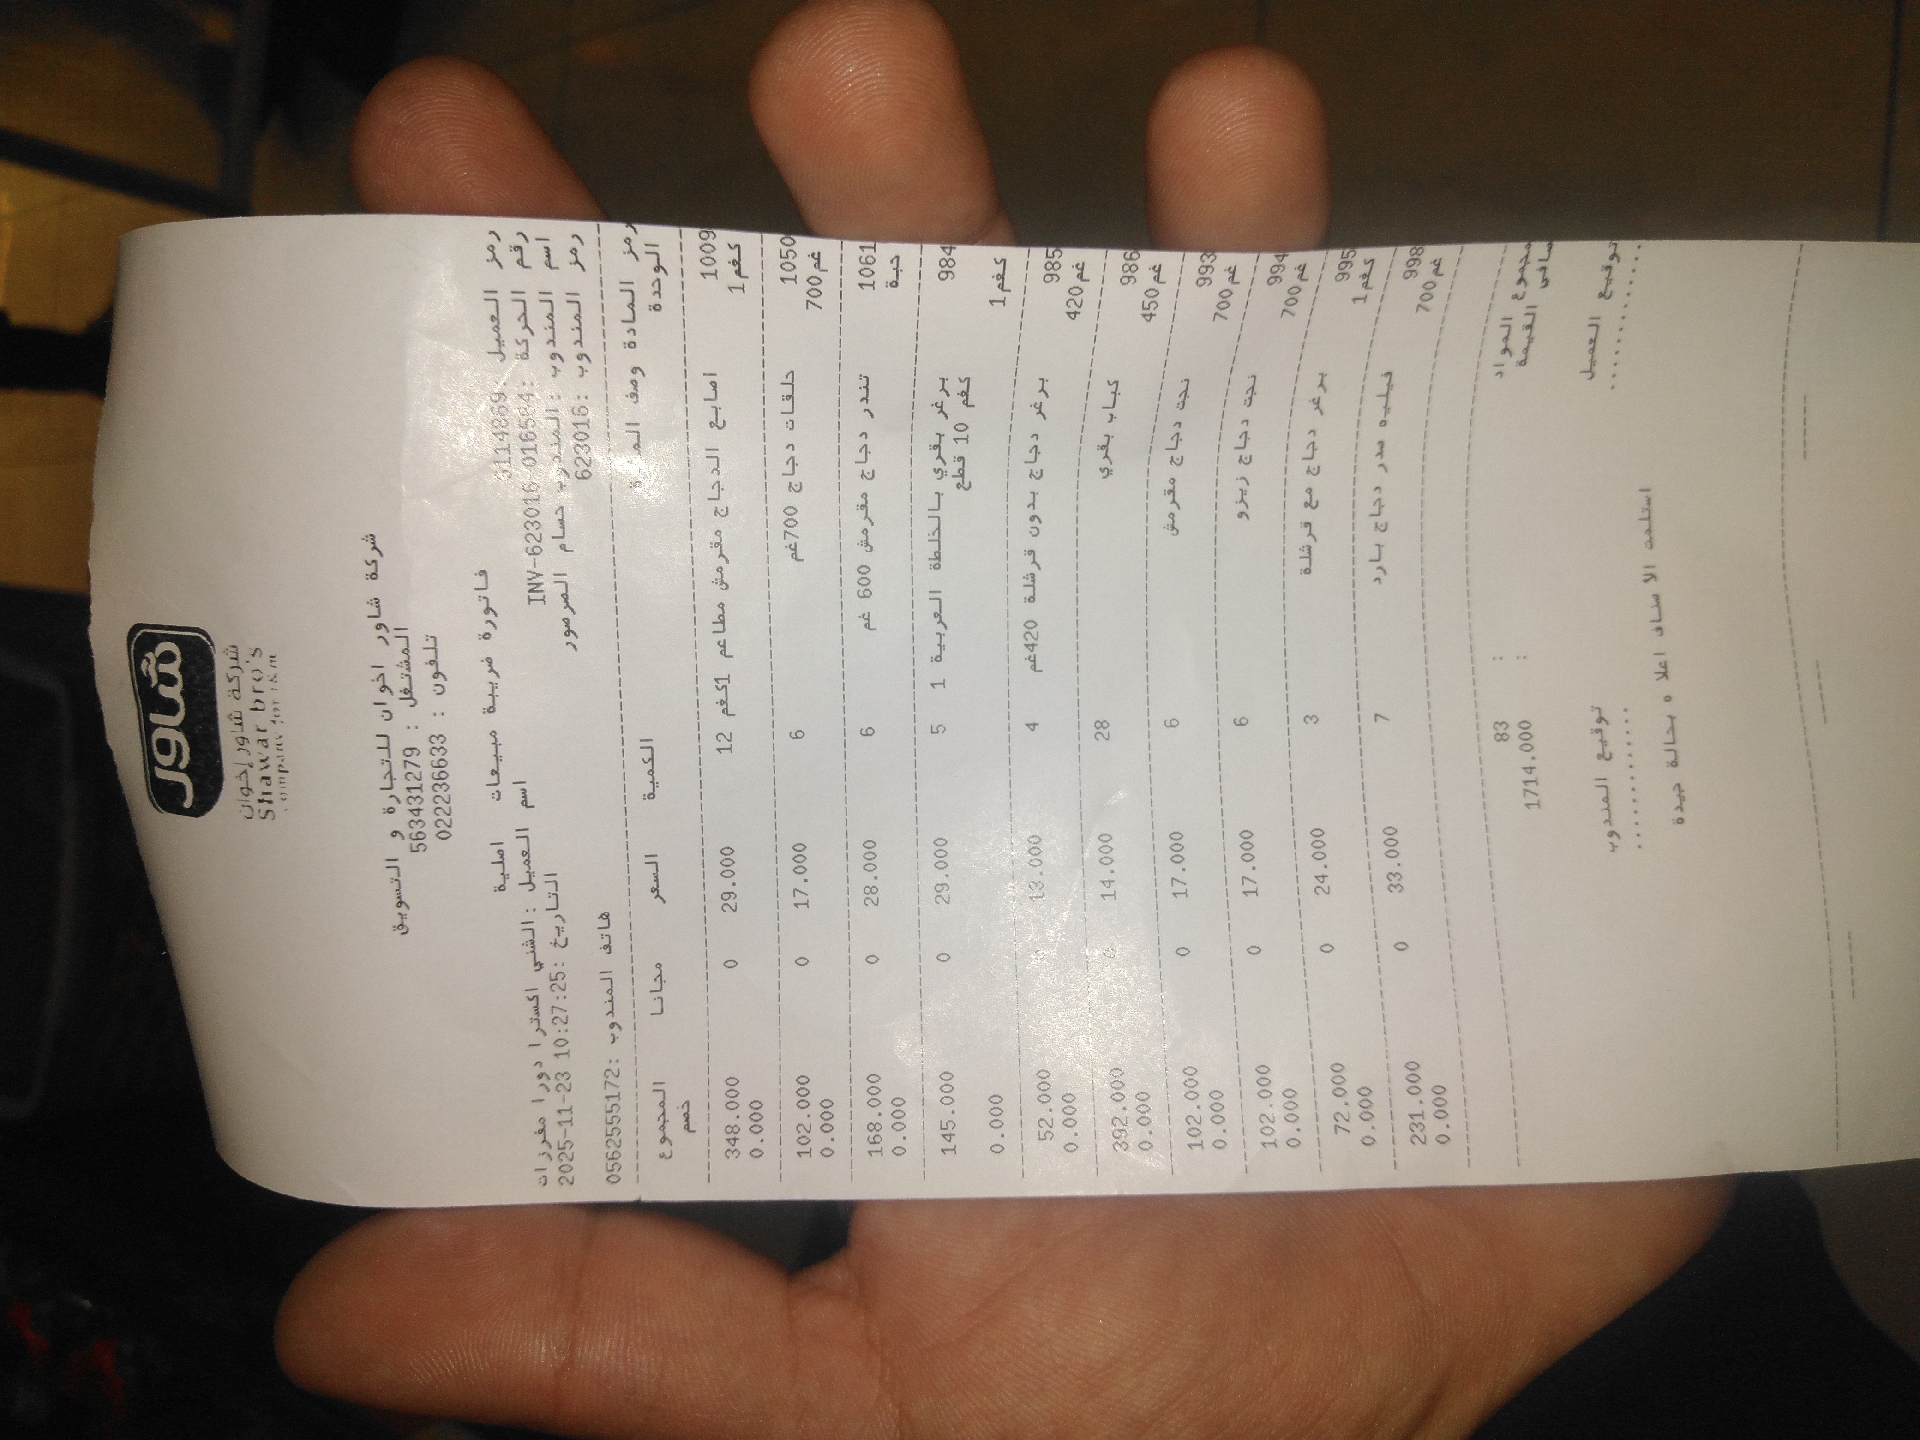 شاور
شركة شاور إخوان
Shawar bro's
company for t&m
شركة شاور اخوان للتجارة و التسويق
المشتغل : 563431279
تلفون : 022236633
فاتورة ضريبة مبيعات اصلية
رمز العميل : 31114869 اسم العميل :الشني اكسترا دورا مفرزات
رقم الحركة : INV-623016-016584 التاريخ :2025-11-23 10:27:25
اسم المندوب :المندوب حسام المرمور
رمز المندوب :623016 هاتف المندوب :0562555172
رمز المادة وصف الكمية السعر مجانا المجموع
الوحدة خصم
1009 اصابع الدجاج مقرمش مطاعم 1كغم 12 29.000 0 348.000
1كغم 0.000
1050 حلقات دجاج 700غم 6 17.000 0 102.000
700غم 0.000
1061 تندر دجاج مقرمش 600 غم 6 28.000 0 168.000
حبة 0.000
984 برغر بقري بالخلطة العربية 1 5 29.000 0 145.000
كغم 10 قطع
1كغم 0.000
985 برغر دجاج بدون قرشلة 420غم 4 13.000 52.000
420 غم 0.000
986 كباب بقري 28 14.000 0 392.000
450 غم 0.000
993 نجت دجاج مقرمش 6 17.000 0 102.000
700غم 0.000
994 نجت دجاج زيزو 6 17.000 0 102.000
700 غم 0.000
995 برغر دجاج مع قرشلة 3 24.000 0 72.000
1كغم 0.000
998 فيليه صدر دجاج بارد 7 33.000 0 231.000
700غم 0.000
مجموع المواد : 83
صافي القيمة : 1714.000
توقيع العميل توقيع المندوب
............. .............
استلمت الاصناف اعلاه بحالة جيدة